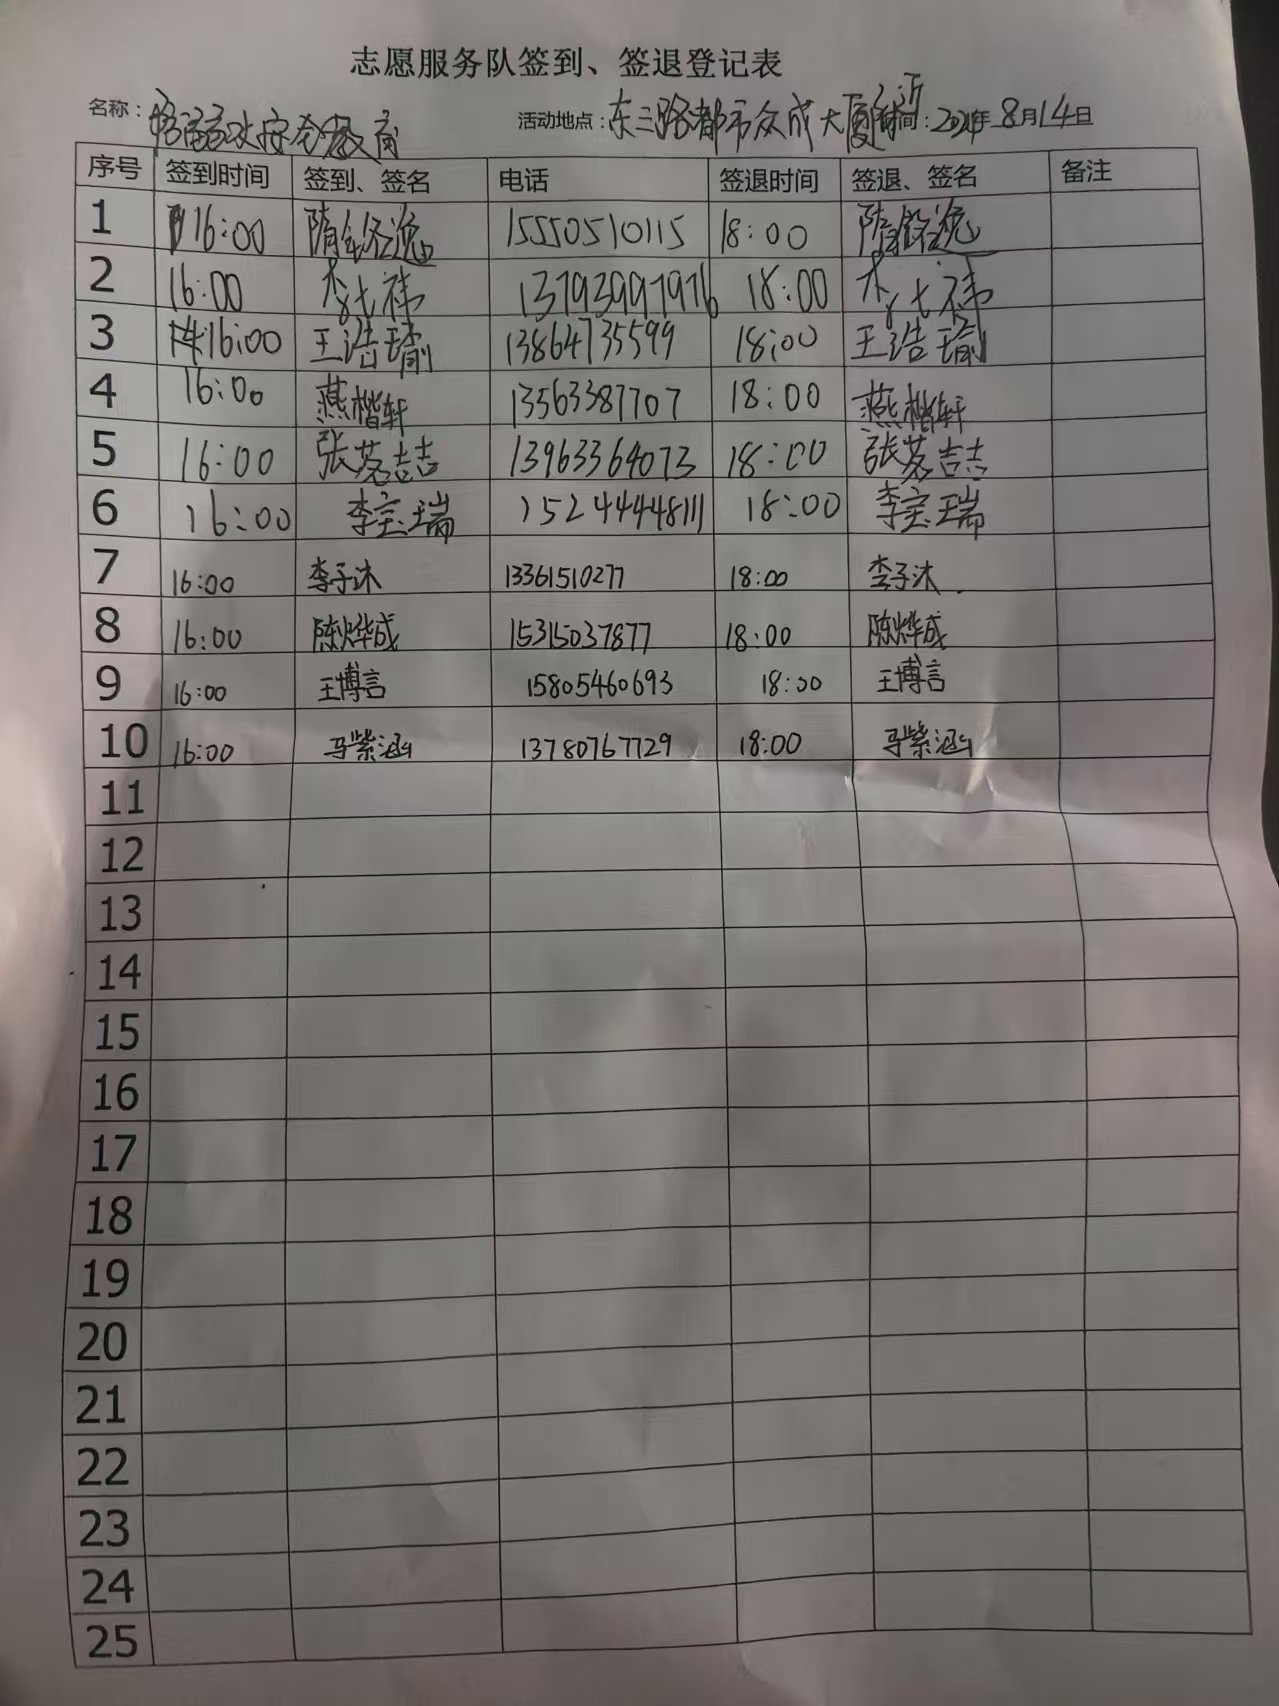 志愿服务队签到、签退登记表
名称： 安全教育 活动地点：东三路都市众成大厦附近 时间：2021年8月14日
序号 签到时间 签到、签名 电话 签退时间 签退、签名 备注
1 16:00 隋 逸 15550510115 18:00 隋 逸
2 16:00 祎 13793997976 18:00 祎
3 16:00 王浩瑜 13864735599 18:00 王浩瑜
4 16:00 燕楷轩 13563387707 18:00 燕楷轩
5 16:00 张茗喆 13963364073 18:00 张茗喆
6 16:00 李宝瑞 15244448111 18:00 李宝瑞
7 16:00 李子沐 13361510277 18:00 李子沐
8 16:00 陈烨成 15315037877 18:00 陈烨成
9 16:00 王博言 15805460693 18:00 王博言
10 16:00 马紫涵 13780767729 18:00 马紫涵
11
12
13
14
15
16
17
18
19
20
21
22
23
24
25